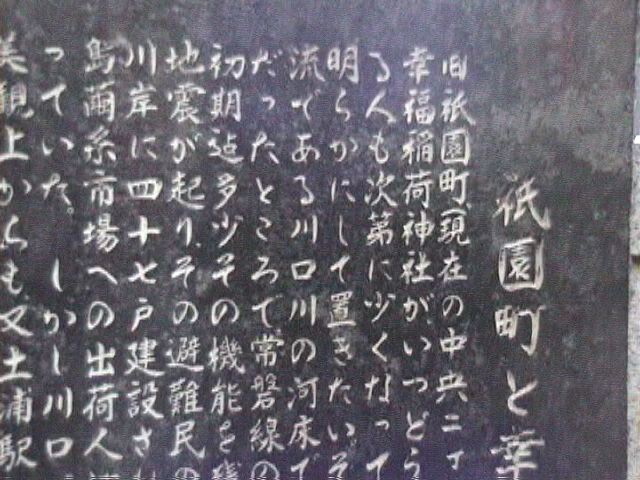 祇園町と幸
旧祇園町(現在の中央二丁
幸福稲荷神社が、いつどう
る人も次第に少くなって
明らかにして置きたい。そ
流である川口川の河床で
だったところで、常磐線の
初期迄多少その機能を残
地震が起り、その避難民の
川岸に四十七戸建設され
島繭糸市場への出荷人
っていた。しかし川口
美観上からも又土浦駅